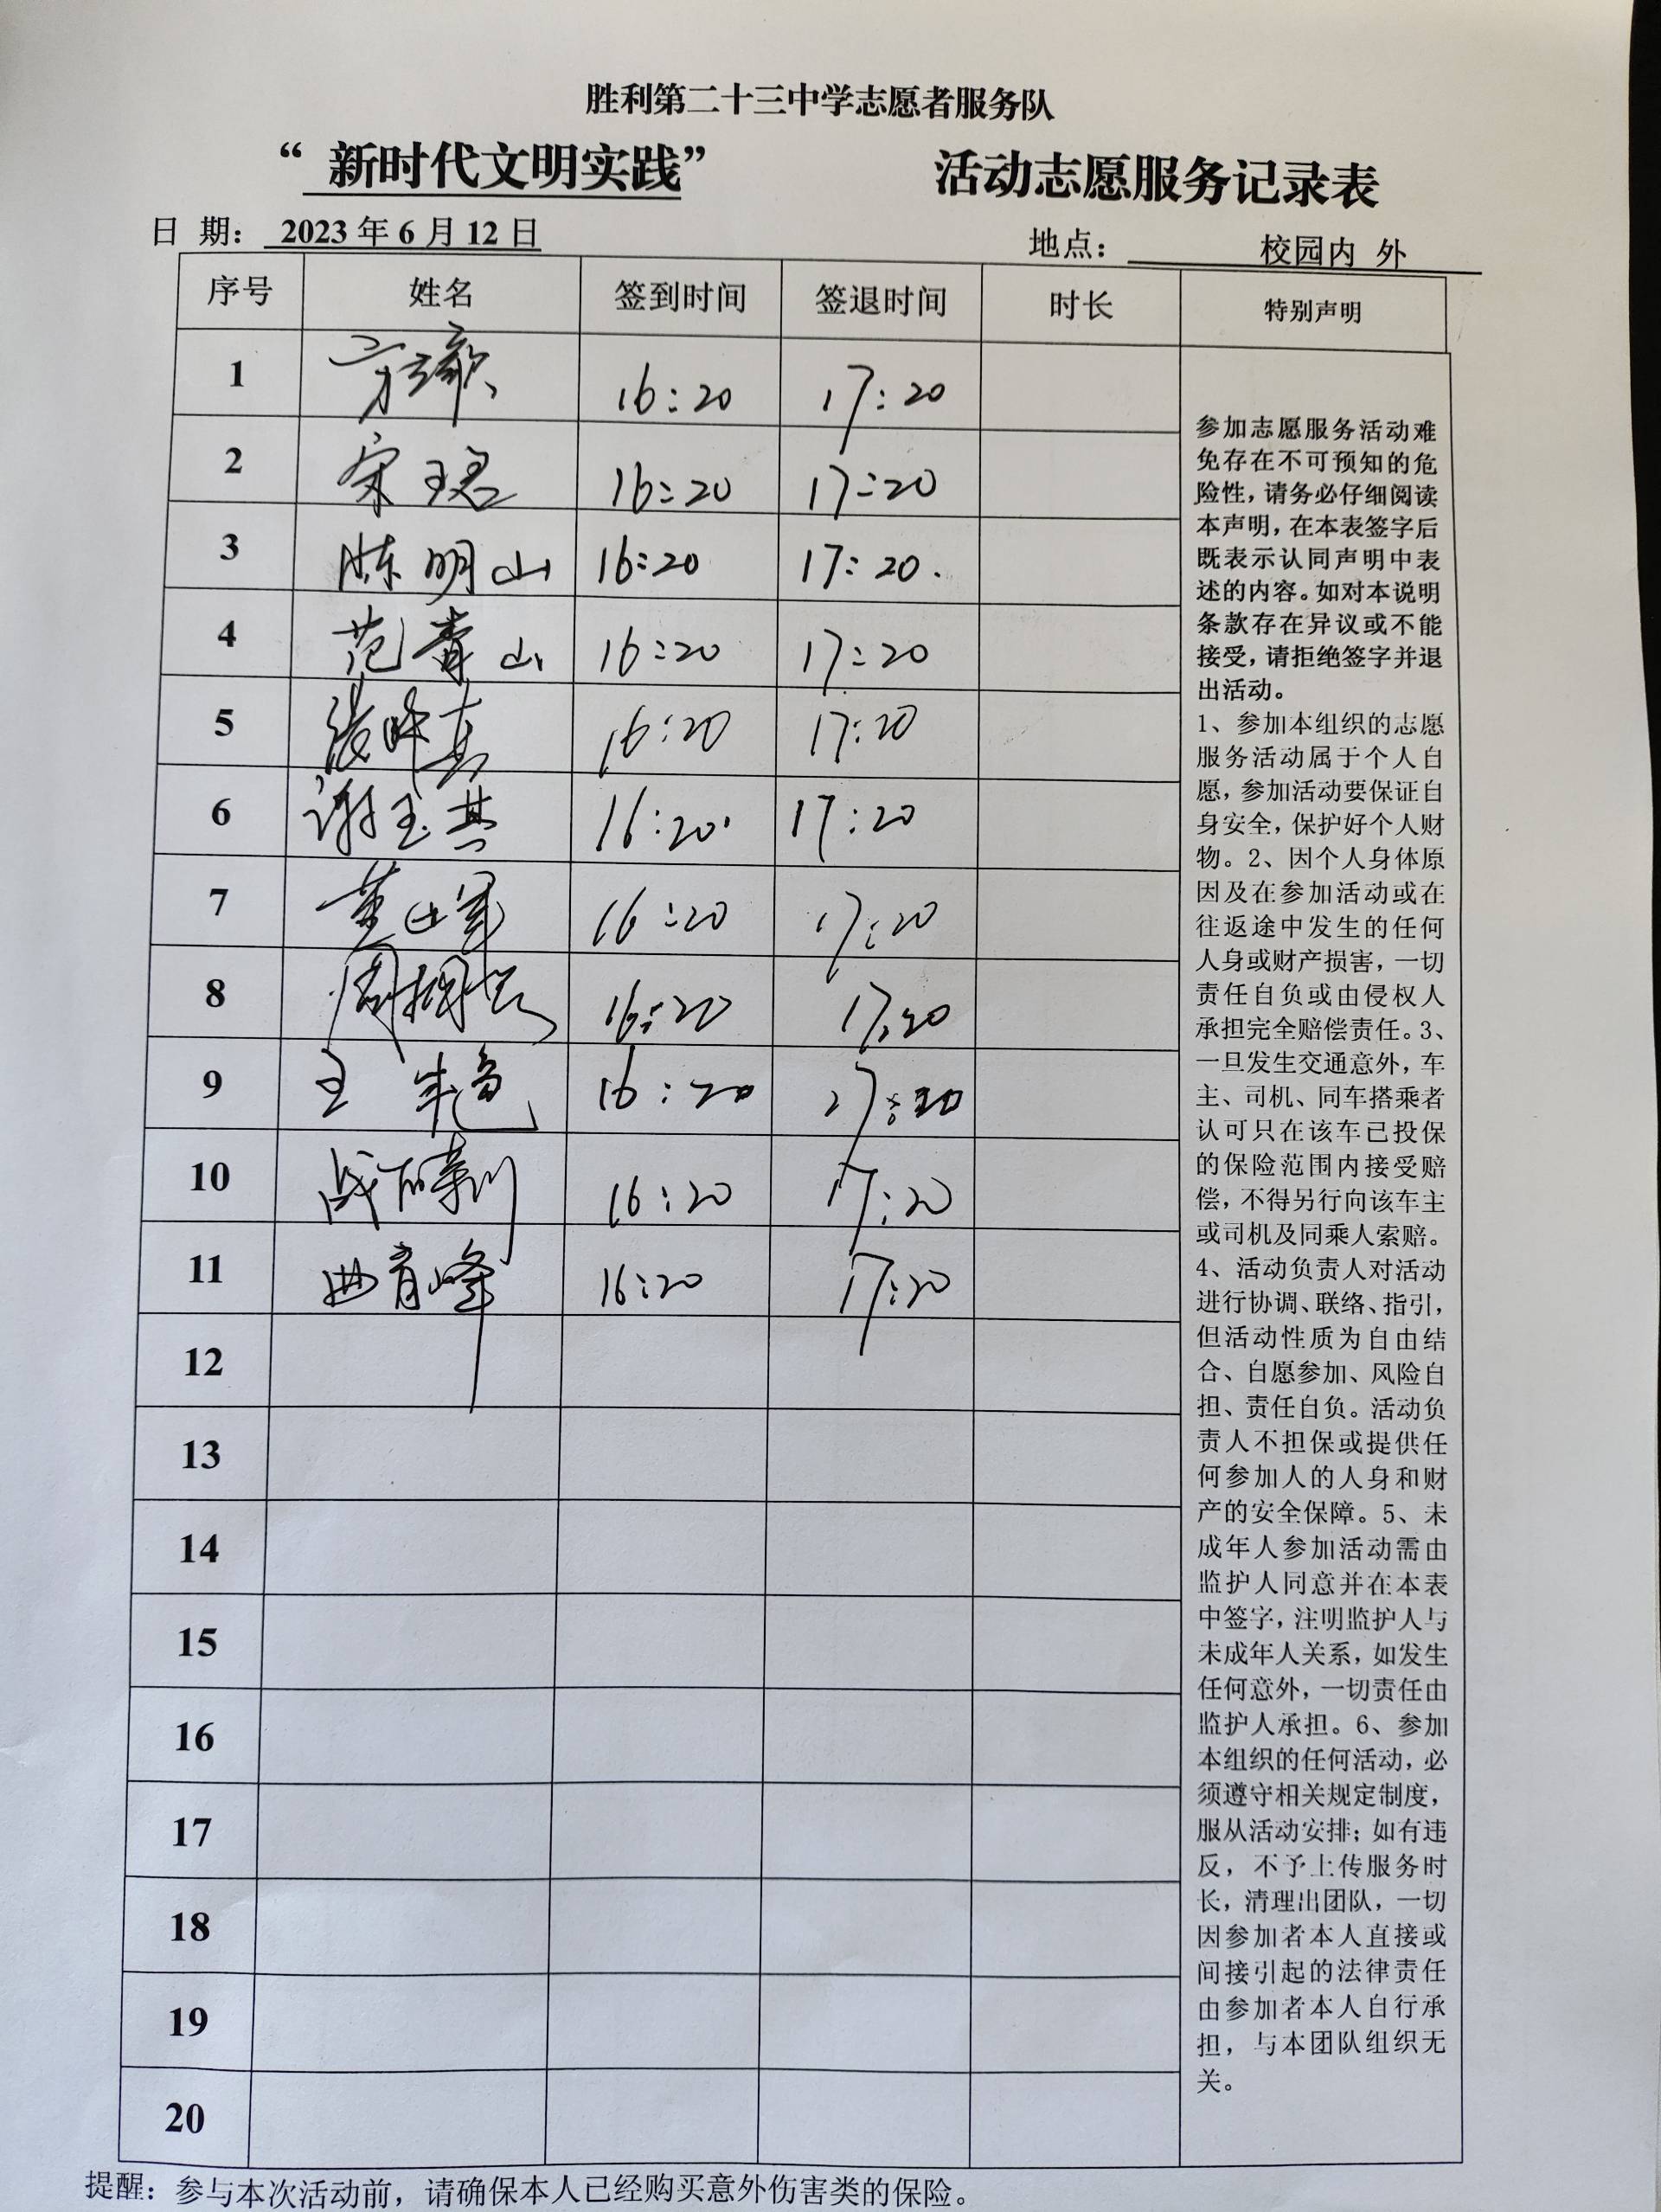 胜利第二十三中学志愿者服务队
“ 新时代文明实践” 活动志愿服务记录表
日 期： 2023 年 6 月 12 日 地点： 校园内 外
序号 姓名 签到时间 签退时间 时长 特别声明
1 16:20 17:20
2 宋 16:20 17:20
3 陈明山 16:20 17:20.
4 范青山 16:20 17:20
5 16:20 17:20
6 谢玉其 16:20 17:20
7 16:20 17:20
8 周 16:20 17:20
9 王 16:20 17:20
10 战 16:20 17:20
11 曲青峰 16:20 17:20
12
13
14
15
16
17
18
19
20
参加志愿服务活动难
免存在不可预知的危
险性，请务必仔细阅读
本声明，在本表签字后
既表示认同声明中表
述的内容。如对本说明
条款存在异议或不能
接受，请拒绝签字并退
出活动。
1、参加本组织的志愿
服务活动属于个人自
愿，参加活动要保证自
身安全，保护好个人财
物。2、因个人身体原
因及在参加活动或在
往返途中发生的任何
人身或财产损害，一切
责任自负或由侵权人
承担完全赔偿责任。3、
一旦发生交通意外，车
主、司机、同车搭乘者
认可只在该车已投保
的保险范围内接受赔
偿，不得另行向该车主
或司机及同乘人索赔。
4、活动负责人对活动
进行协调、联络、指引，
但活动性质为自由结
合、自愿参加、风险自
担、责任自负。活动负
责人不担保或提供任
何参加人的人身和财
产的安全保障。5、未
成年人参加活动需由
监护人同意并在本表
中签字，注明监护人与
未成年人关系，如发生
任何意外，一切责任由
监护人承担。6、参加
本组织的任何活动，必
须遵守相关规定制度，
服从活动安排；如有违
反，不予上传服务时
长，清理出团队，一切
因参加者本人直接或
间接引起的法律责任
由参加者本人自行承
担，与本团队组织无
关。
提醒：参与本次活动前，请确保本人已经购买意外伤害类的保险。